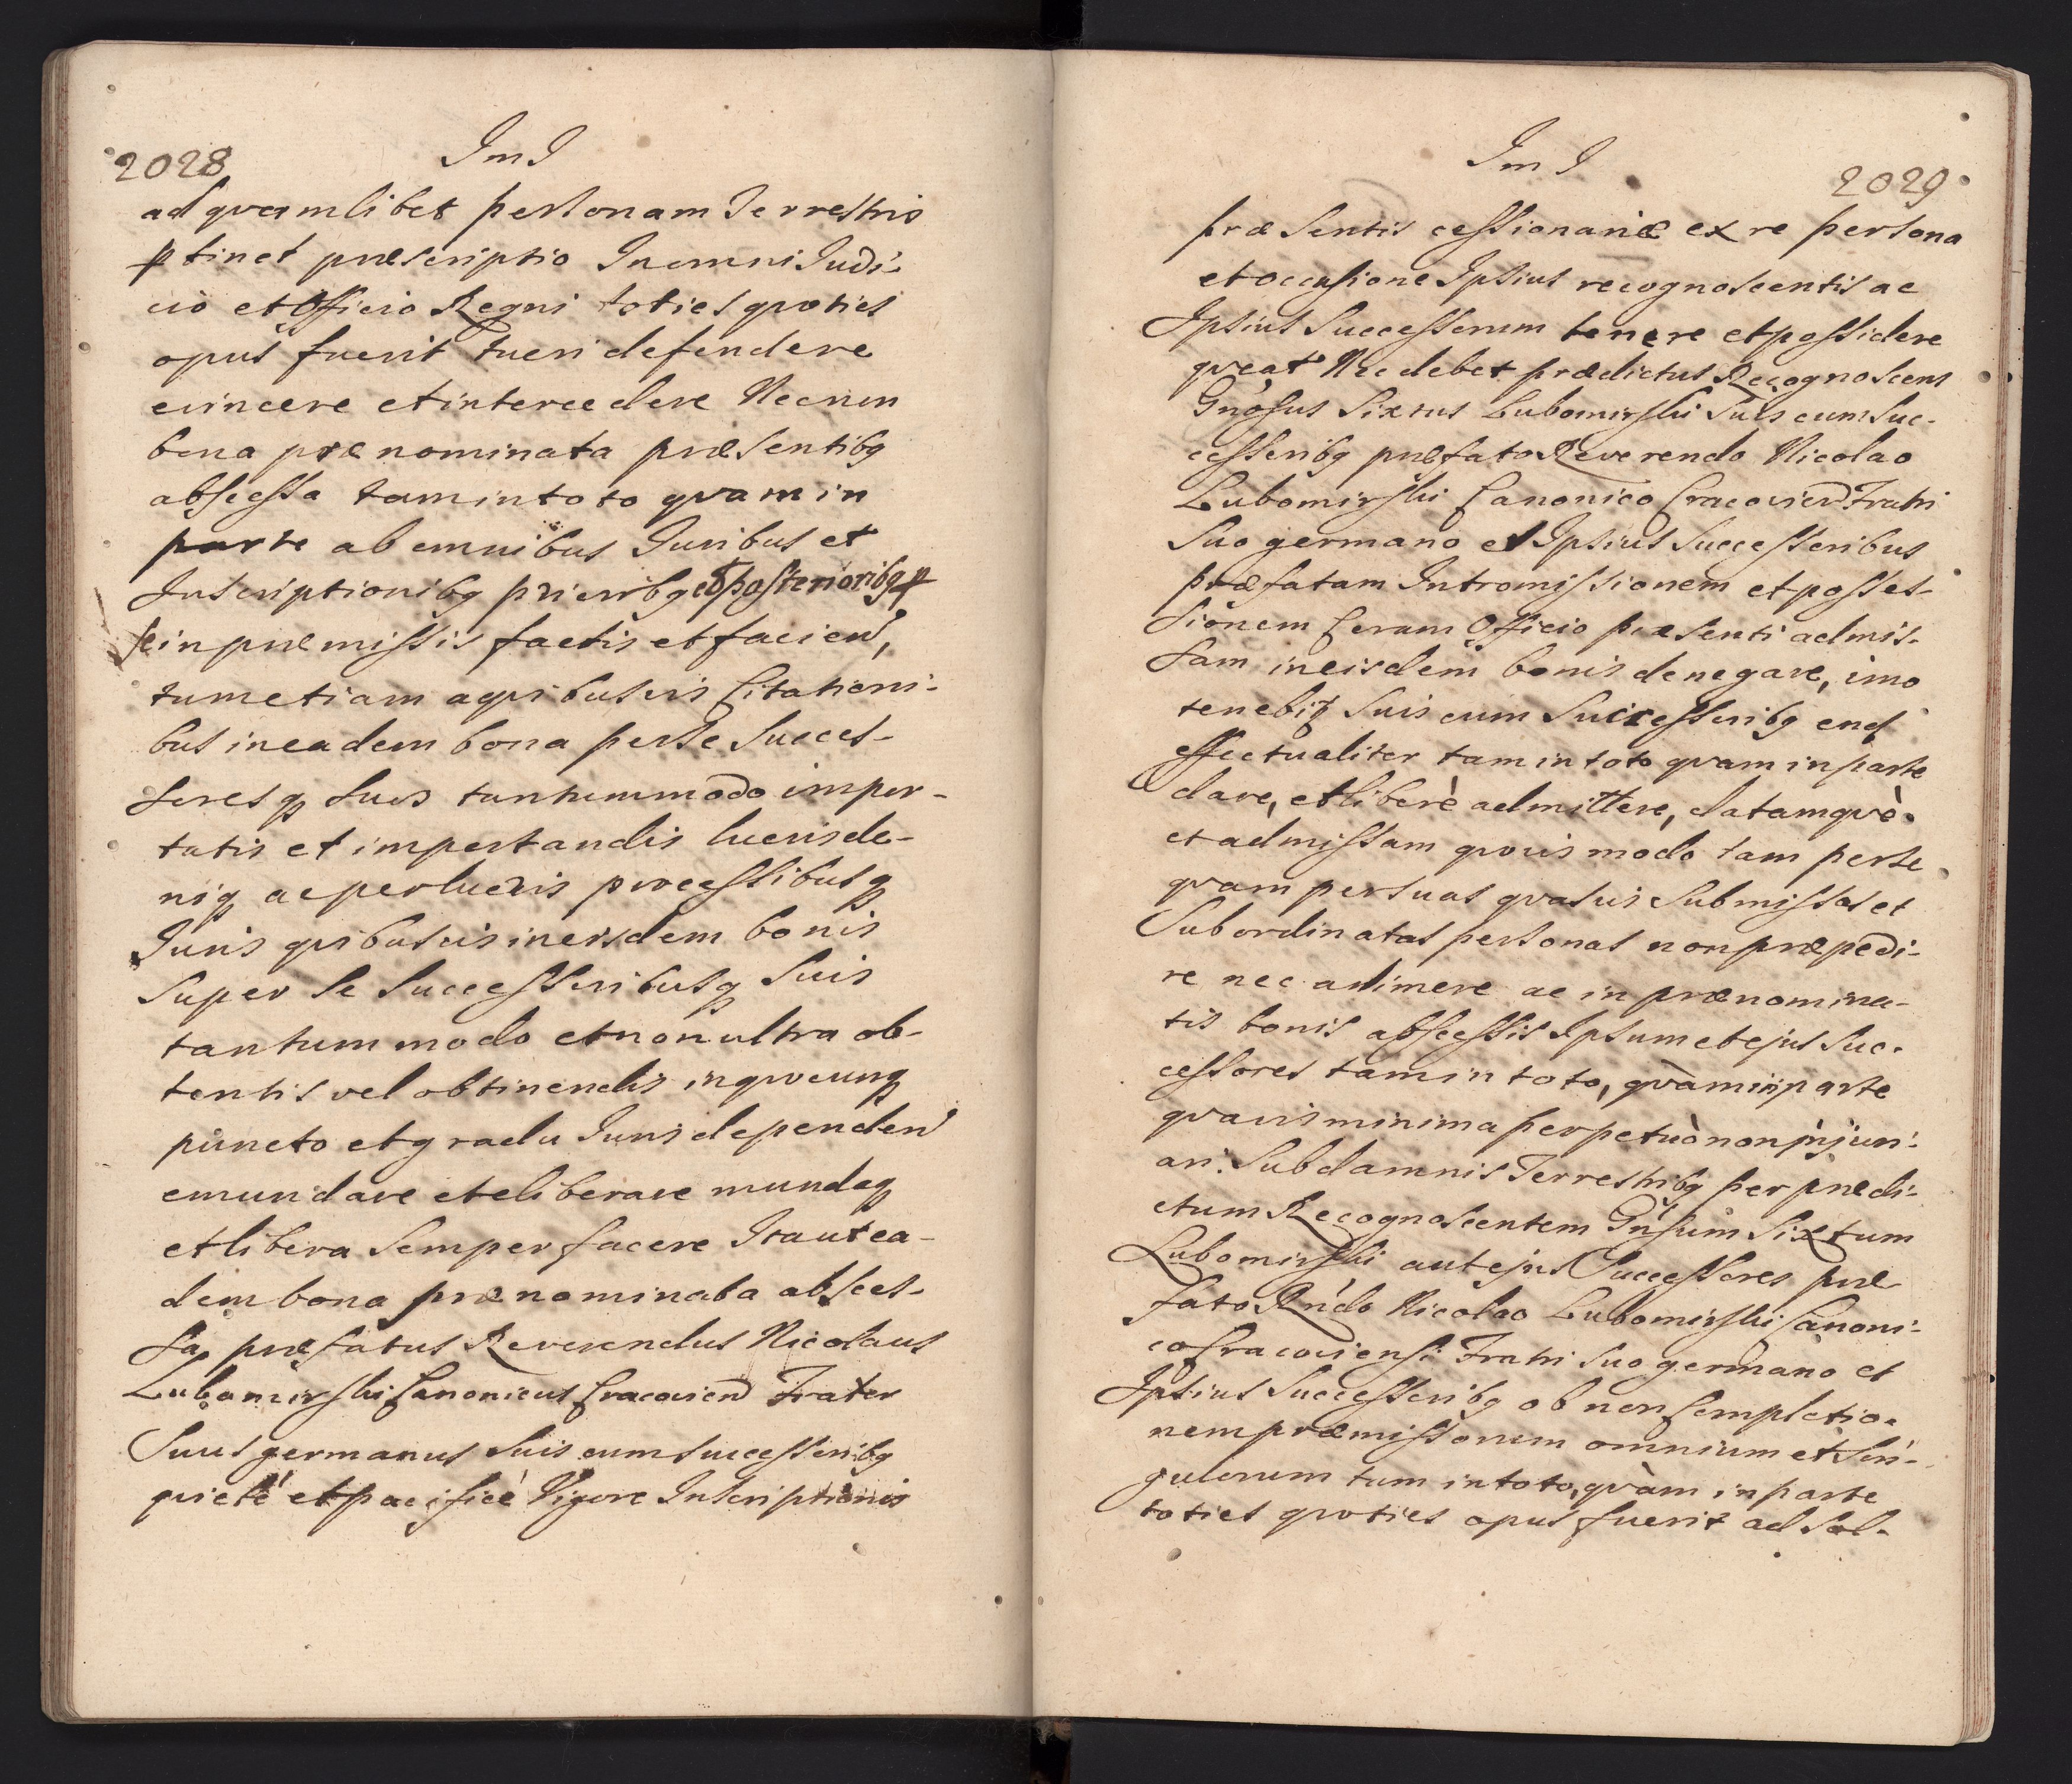 2028 Im I
ad qvamlibet personam Terrestris
ptinet præscriptio In omni Judi-
cio et Officio Regni toties qvoties
opus fuerit tueri defendere
evincere et intercedere Necnon
bona prænominata præsentibq
abscessa tam in toto qvam in
parte ab omnibus Juribus et
Inscriptionibq prioribq et posterioribq p
se in præmissis factis et faciend,
tum etiam a qvibusvis Citationi-
bus in eadem bona per se Succes-
soresq suos tantummodo impor-
tatis et importandis lucris de-
niq ac perlucris processibusq
Juris qvibusvis in eisdem bonis
Super se Successoribusq Suis
tantummodo et non ultra ob-
tentis vel obtinendis in qvocunq
puncto et gradu Juris dependen
emundare et eliberare mundaq
et libera Semper facere Ita ut ea-
dem bona prænominata absces-
sa, præfatus Reverendus Nicolaus
Lubomirski Canonicus Cracovien Frater
Suus germanus Suis cum successoribq
qvietè et pacificè Vigore Inscriptionis
Im I 2029
præsentis cessionariæ ex re persona
et occasione Ipsius recognoscentis ac
Ipsius Successorum tenere et possidere
qveat Nec debet prædictus Recognoscens
Gnosus Sixtus Lubomirski Suis cum Suc-
cessoribq præfato Reverendo Nicolao
Lubomirski Canonico Cracovien Fratri
Suo germano et Ipsius Successoribus
præfatam Intromissionem et posses-
sionem Coram Officio præsenti admis-
sam in eisdem bonis denegare, imo
tenebit Suis cum Successoribq end
effectualiter tam in toto qvam in parte
dare, et liberè admittere, datamqvè
et admissam qvovis modo tam per se
qvam per suas qvasvis Submissas et
Subordinatas personas non præpedi-
re nec adimere ac in prænomina-
tis bonis abscessis Ipsum et ejus Suc-
cessores tam in toto, qvàm in parte
qvavis minima perpetuò non injuri-
ari. Sub damnis Terrestribq per prædi-
ctum Recognoscentem Gnsum Sixtum
Lubomirski aut ejus Successores præ
fato Rndo Nicolao Lubomirski Canoni-
co Cracoviensi Fratri Suo germano et
Ipsius Successoribq ob non Completio-
nem præmissorum omnium et Sin-
gulorum tum in toto, qvàm in parte
toties qvoties opus fuerit ad Sol-